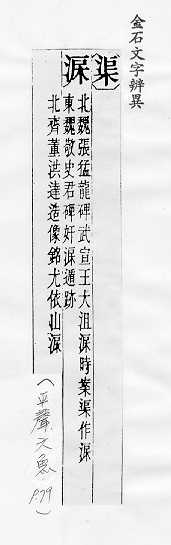 金石文字辨異
【渠】
北魏張猛龍碑武宣王大沮時案渠作
東魏敬史君碑奸遁跡
北齊董洪達造像銘尤依山
(平聲六魚
P.79)